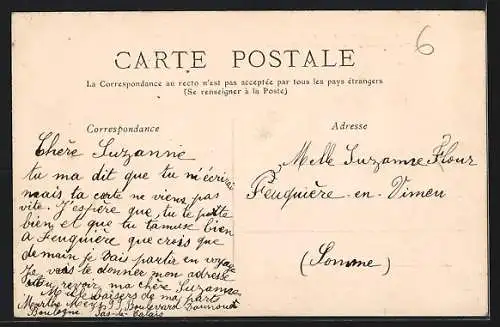 6
CARTE POSTALE
La Correspondance au recto n'est pas acceptée par tous les pays étrangers
(Se renseigner à la Poste)
Correspondance
Adresse
Chère Suzanne
tu ma dit que tu m'écrirai
mais ta carte ne viens pas
vite. J'espère que tu te porte
bien et que tu t'amuse bien
à Feuquière que crois que
demain je vais partir en voyage
Je vais te donner mon adresse
revoir ma chère Suzanne
Mille baisers de ma part
Boulevard
Boulogne Pas-de-Calais
Melle Suzanne Flour
Feuquière-en-Vimeu
(Somme)